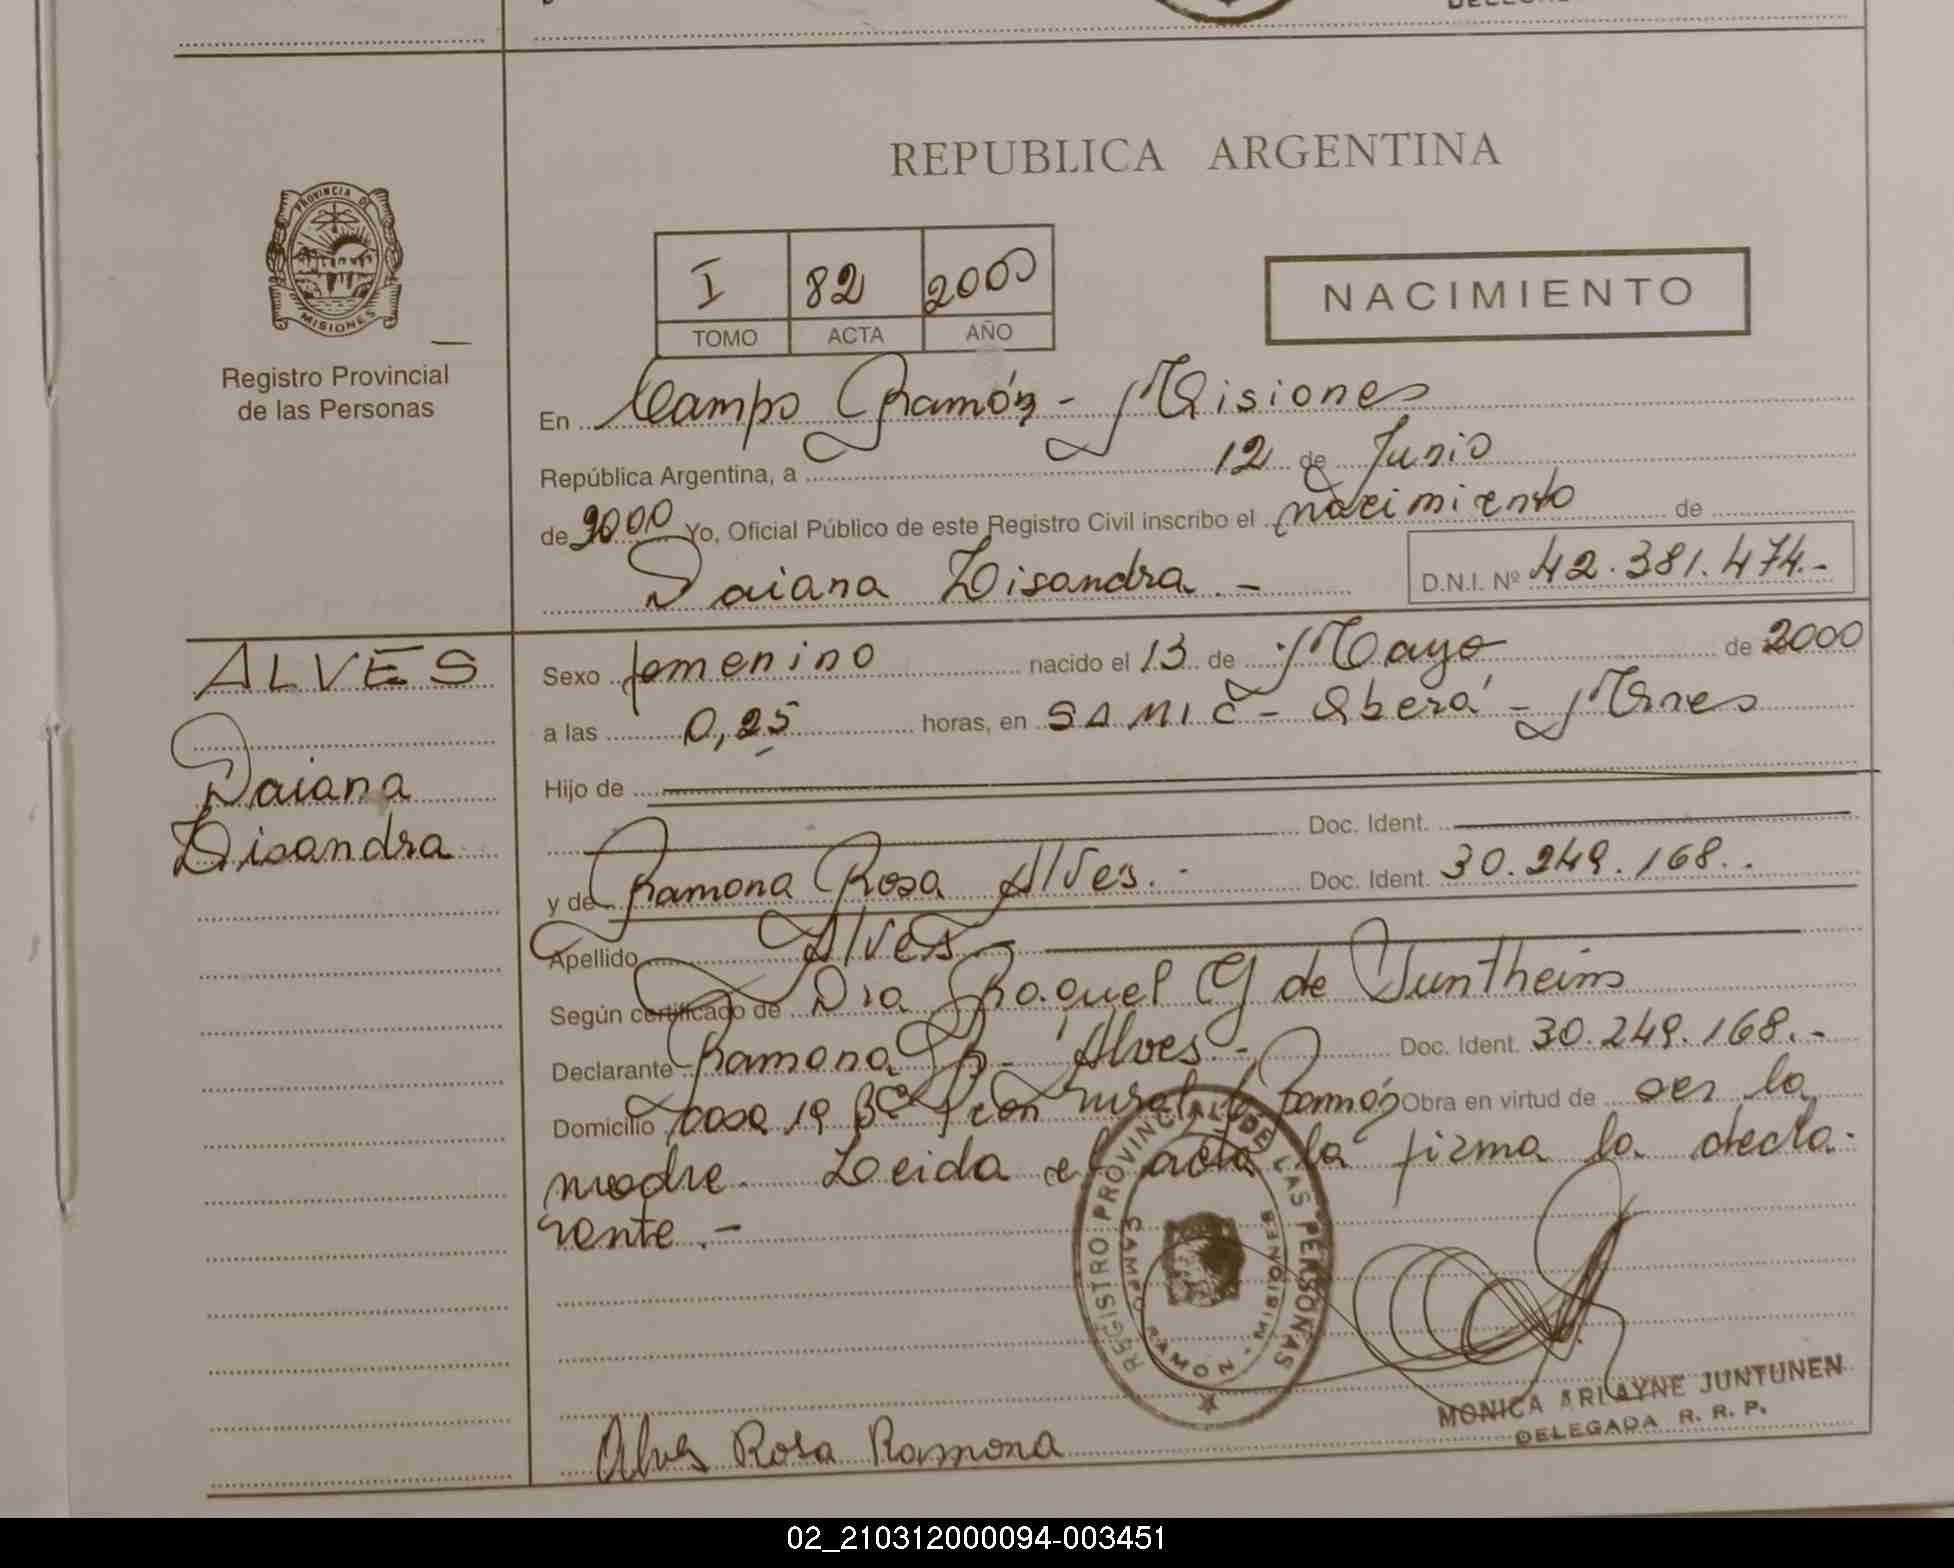 REPUBLICA ARGENTINA
PROVINCIA DE
MISIONES
Registro Provincial
de las Personas
I 82 2000
TOMO ACTA AÑO
NACIMIENTO
En Campo Ramón - Misiones
República Argentina, a 12 de Junio
de 2000 Yo, Oficial Público de este Registro Civil inscribo el nacimiento de
Daiana Lisandra. - D.N.I. Nº 42.381.474.-
ALVES
Daiana
Lisandra
Sexo femenino nacido el 13 de Mayo de 2000
a las 0,25 horas, en SAMIC - Oberá - Mnes
Hijo de
Doc. Ident.
y de Ramona Rosa Alves. - Doc. Ident. 30.249.168.
Apellido Alves
Según certificado de Dra Raquel G de Juntheins
Declarante Ramona R - Alves - Doc. Ident. 30.249.168.-
Domicilio casa 19 Bº rural Ramón Obra en virtud de ser la
madre. Leida el acta la firma la decla-
rante. -
REGISTRO PROVINCIAL DE LAS PERSONAS
CAMPO RAMON - MISIONES
MONICA ARLAYNE JUNTUNEN
DELEGADA R. R. P.
Alves Rosa Ramona
02_210312000094-003451